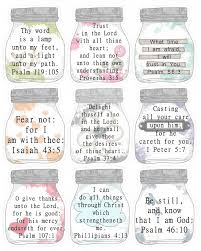 Thy word
is a lamp
unto my feet,
and a light
unto my path
Psalm 119:105
Trust
in the Lord
with all thine
heart;
and lean not
unto thine own
understanding
Proverbs
What time
I am afraid,
I will
trust in You
Psalm 56:3
Fear not:
for I
am with thee:
Isaiah 43:5
Delight
thyself also
in the Lord:
and he shall
give thee
the desires
of thine heart.
Psalm 37:4
Casting
all your care
upon him;
for he
careth for you.
Peter 5:7
O give thanks
unto the Lord,
for he is good:
for his mercy
endureth forever.
Psalm 107:1
I can do
all things
through Christ
which
strengtheneth
me.
Phillipians 4:13
Be still,
and know
that I am God:
Psalm 46:10